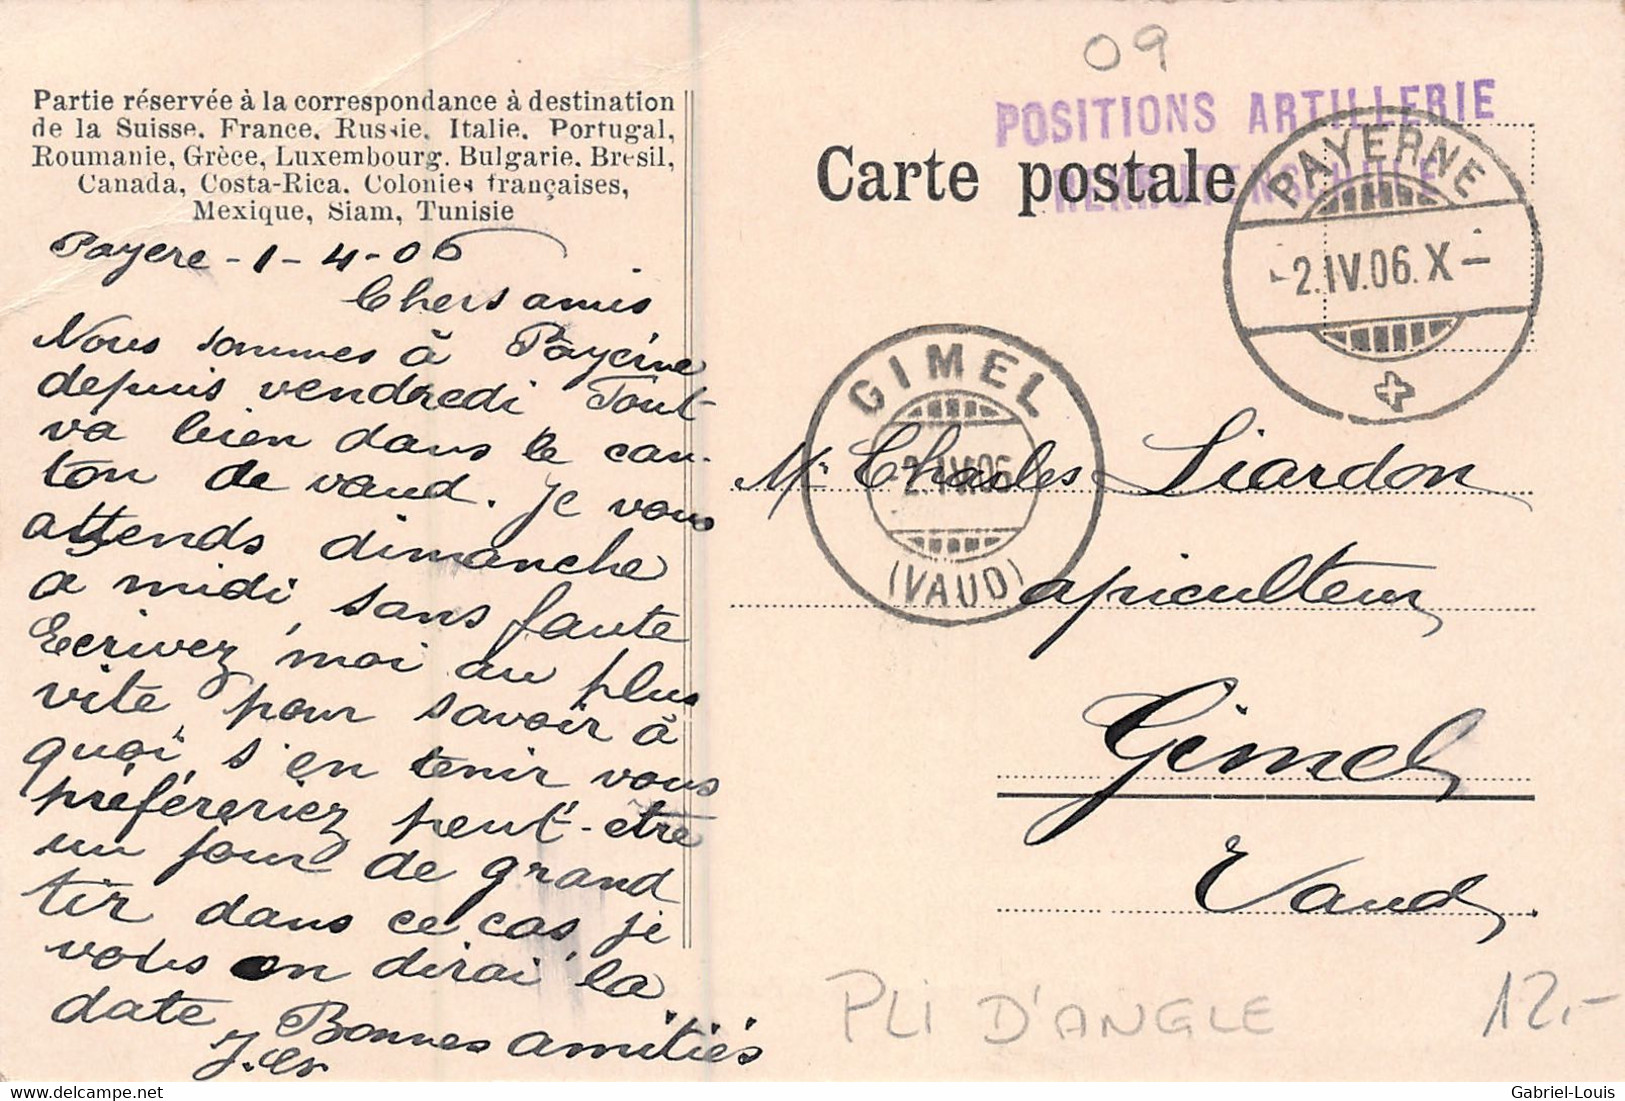 09
Partie réservée à la correspondance à destination
de la Suisse, France, Russie, Italie, Portugal,
Roumanie, Grèce, Luxembourg, Bulgarie, Brésil,
Canada, Costa-Rica, Colonies françaises,
Mexique, Siam, Tunisie
POSITIONS ARTILLERIE
REKRUTENSCHULE
Carte postale
PAYERNE
-2.IV.06.X-
GIMEL
2.IV.06
(VAUD)
Payere - 1 - 4 - 06
Chers amis
Nous sommes à Payerne
depuis vendredi Tout
va bien dans le can-
ton de vaud. Je vous
attends dimanche
a midi, sans faute
Ecrivez moi au plus
vite pour savoir à
quoi s'en tenir vous
préféreriez peut-etre
un jour de grand
tir dans ce cas je
vous en dirai la
date, Bonnes amitiés
Mr Charles Liardon
apiculteur
Gimel
Vaud
PLI D'ANGLE
12.-
www.delcampe.net
Gabriel-Louis